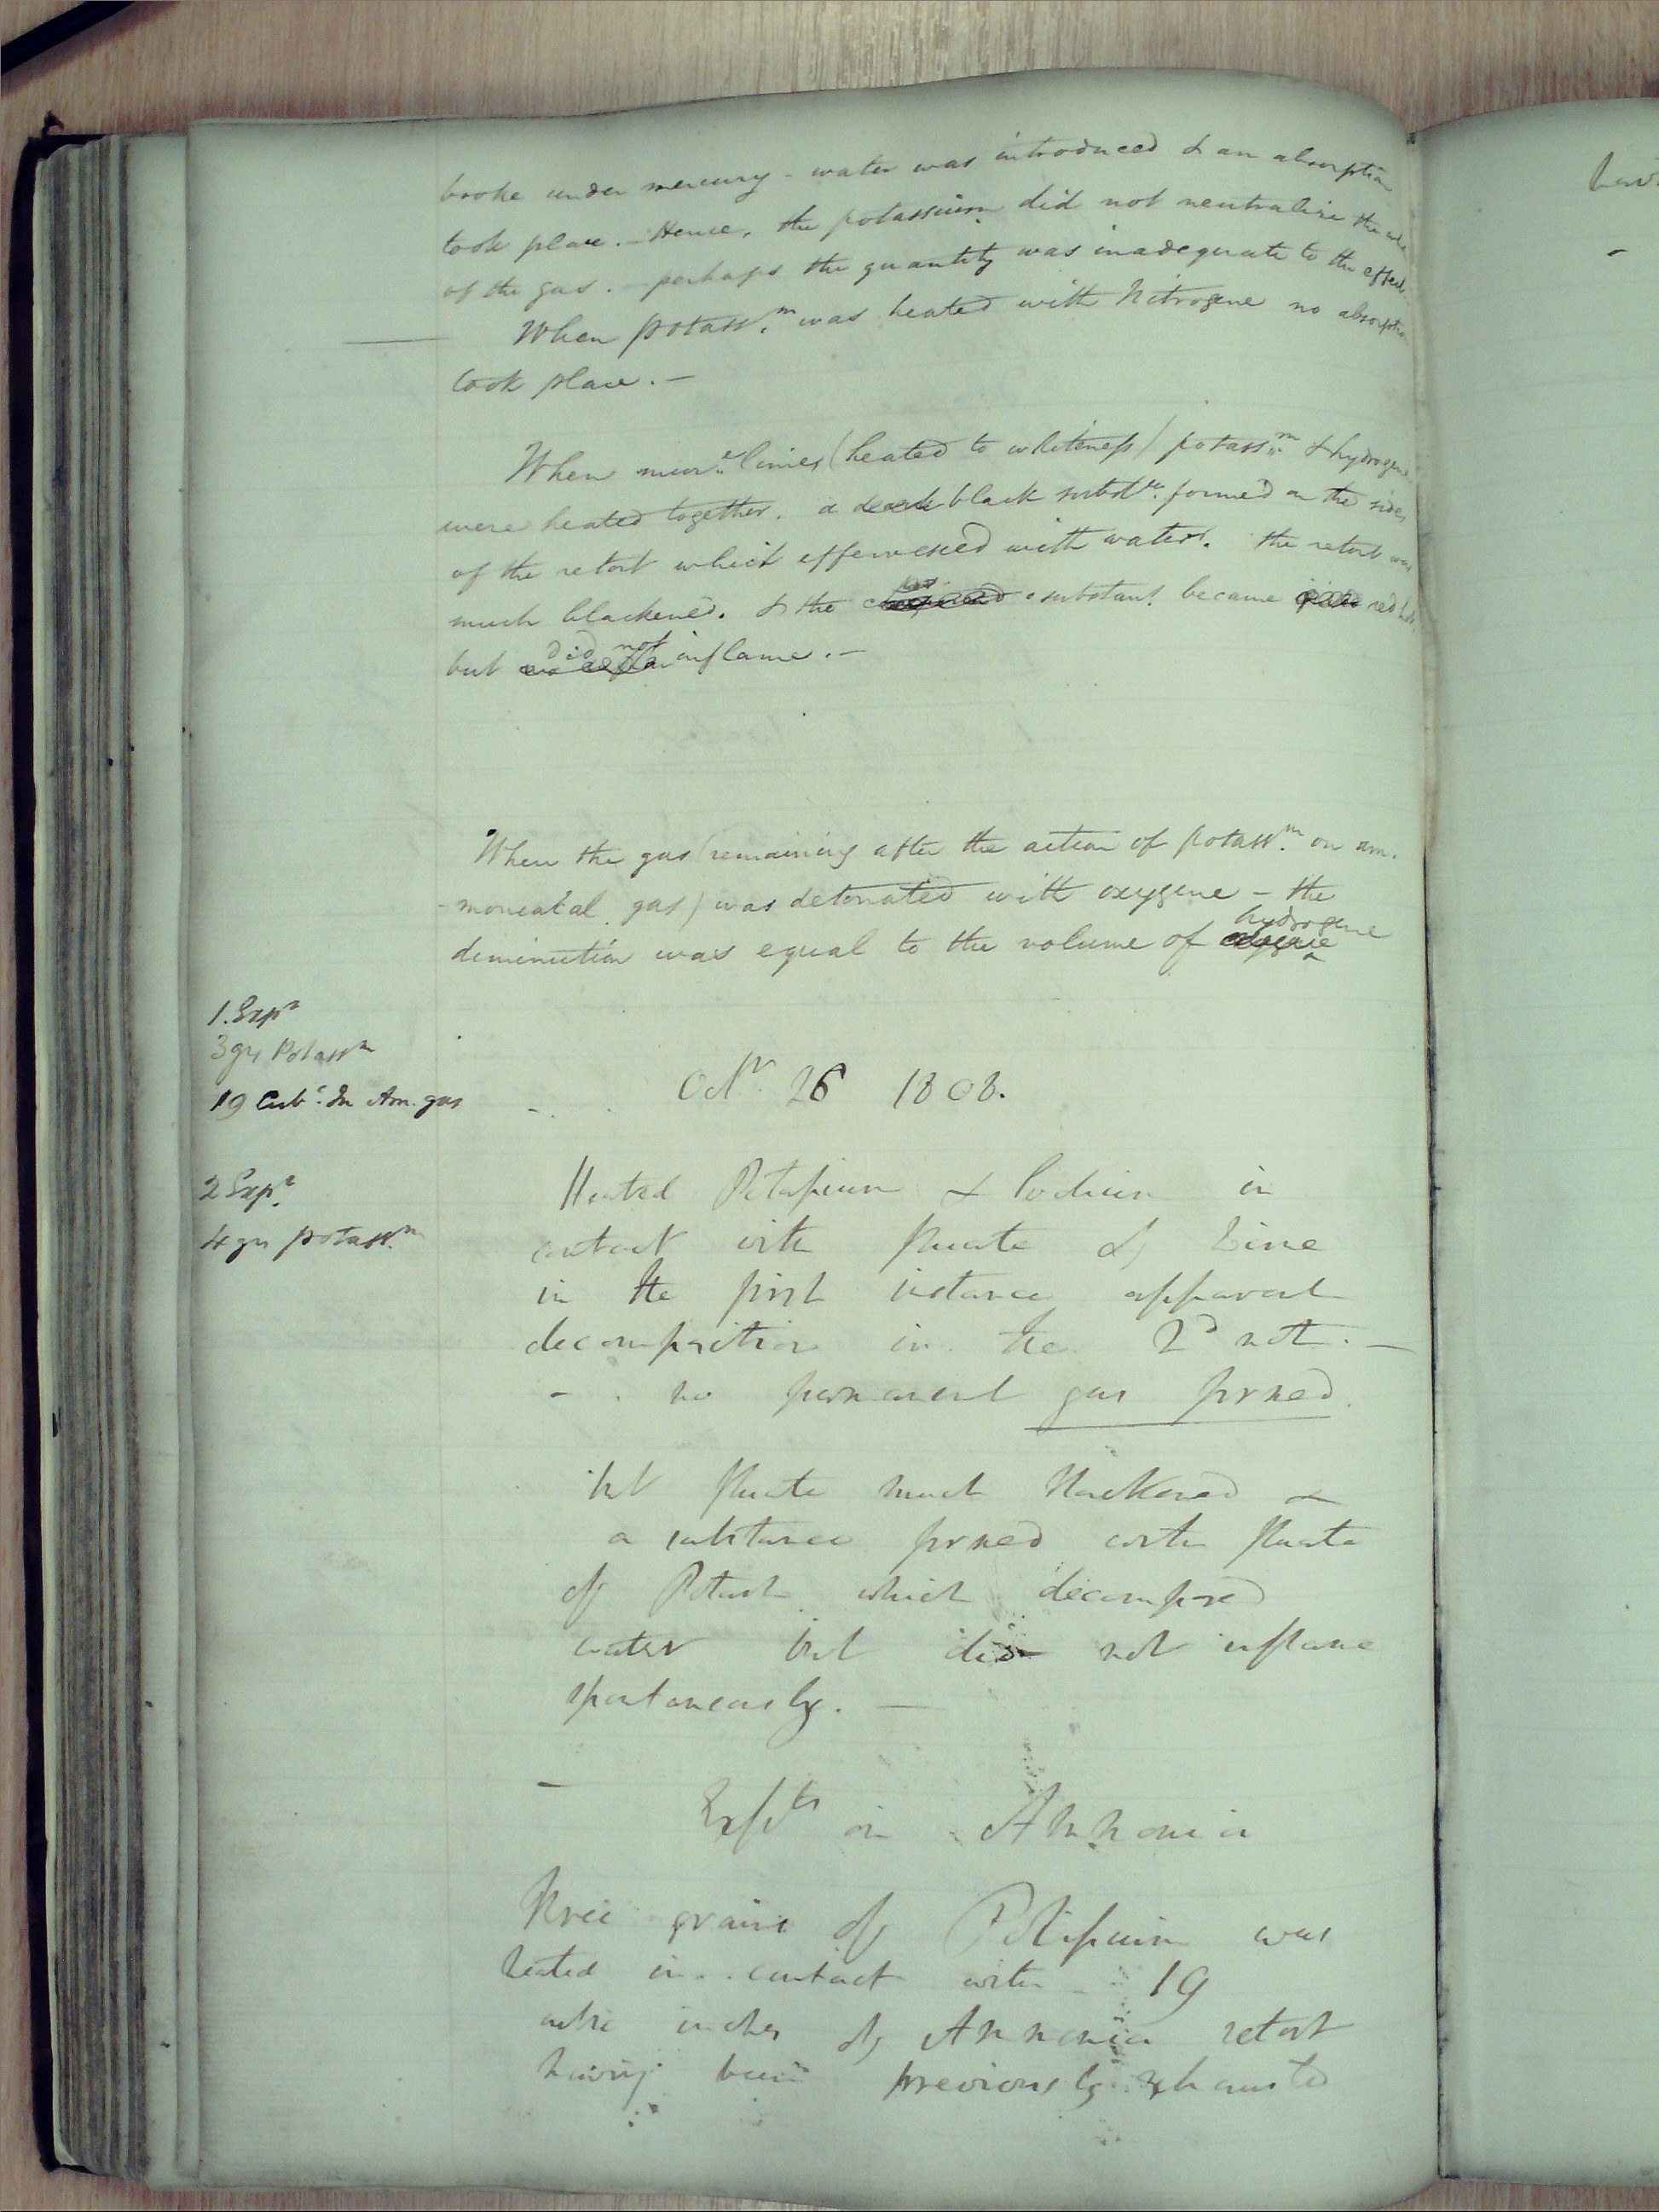 broke under mercury - water was introduced & an absorption
took place. - Hence, the potassium did not neutralize the whole
of the gas. - perhaps the quantity was inadequate to the effect.
When potass.m was heated with Nitrogene no absorption
took place. -
When mur.e lime (heated to whiteness) potass.m & hydrogene
were heated together. a dark black subst.ce formed on the sides
of the retort which effervesced with water. the retort was
much blackened. & the substance became red hot.
but did not inflame. -
When the gas (remaining after the action of potass.m on am-
-moniacal gas) was detonated with oxygene - the
diminution was equal to the volume of hydrogene
1. Expt
3 grs Potassm
19 Cub.c In Am. gas
Octr. 26 1808.
2 Expt.
4 grs potass.m
Heated Potassium & Sodium in
contact with fluate of Lime
in the first instance apparent
decomposition in the 2d not. -
- . no permanent gas formed.
but fluate much blackened &
a substance formed with fluate
of Potash which decomposed
water but did not inflame
spontaneously. -
- Expts on Ammonia
Three grains of Potassium was
heated in contact with 19
cubic inches of Ammonia retort
having been previously exhausted